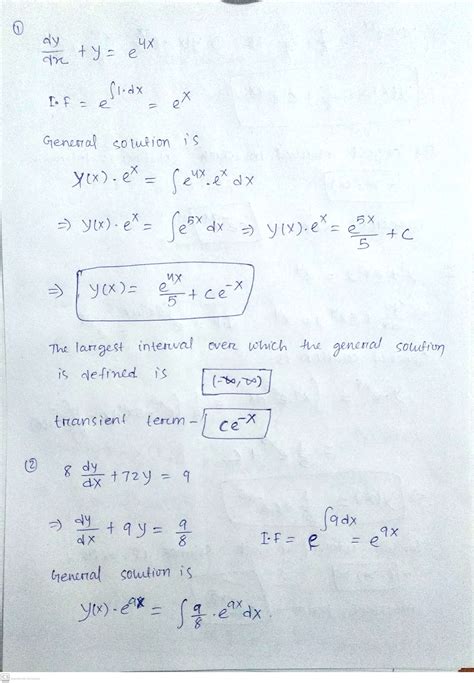 ① dy/dx + y = e^{4x}
I.F = e^{∫1·dx} = e^x
General solution is
y(x)·e^x = ∫e^{4x}·e^x dx
⇒ y(x)·e^x = ∫e^{5x} dx ⇒ y(x)·e^x = e^{5x}/5 + c
⇒ y(x) = e^{4x}/5 + ce^{-x}
The largest interval over which the general solution
is defined is (-∞,∞)
transient term - ce^{-x}
② 8 dy/dx + 72y = 9
⇒ dy/dx + 9y = 9/8 I.F = e^{∫9dx} = e^{9x}
General solution is
y(x)·e^{9x} = ∫9/8·e^{9x}dx.